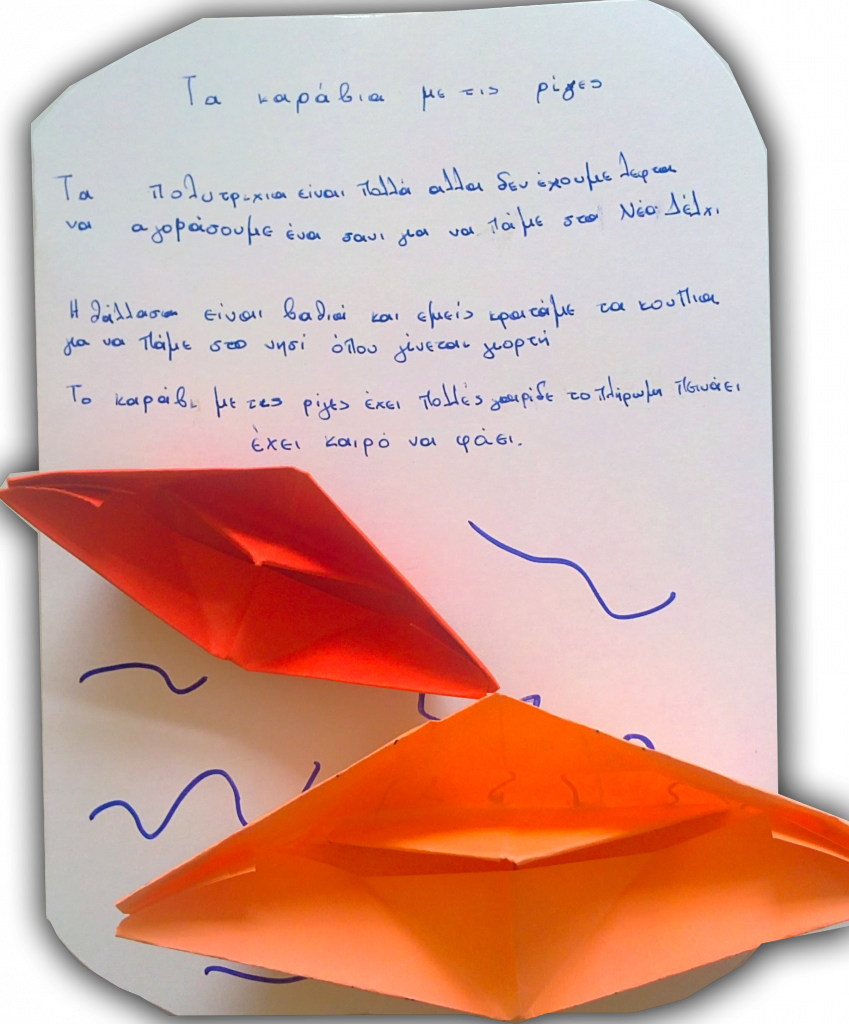 Τα καράβια με τις ρίγες
Τα Πολυτρίχια είναι Πολλά αλλα δεν έχουμε λεφτα
να αγοράσουμε ένα σανι για να πάμε στο Νέο Δέλχι
Η θάλλασα είναι βαθιά και εμείς κρατάμε τα κουπια
για να πάμε στο νησί όπου γίνεται γιορτή
Το καράβι με τις ρίγες έχει Πολλές το πλήρωμα πεινάει
έχει καιρό να φάσι.